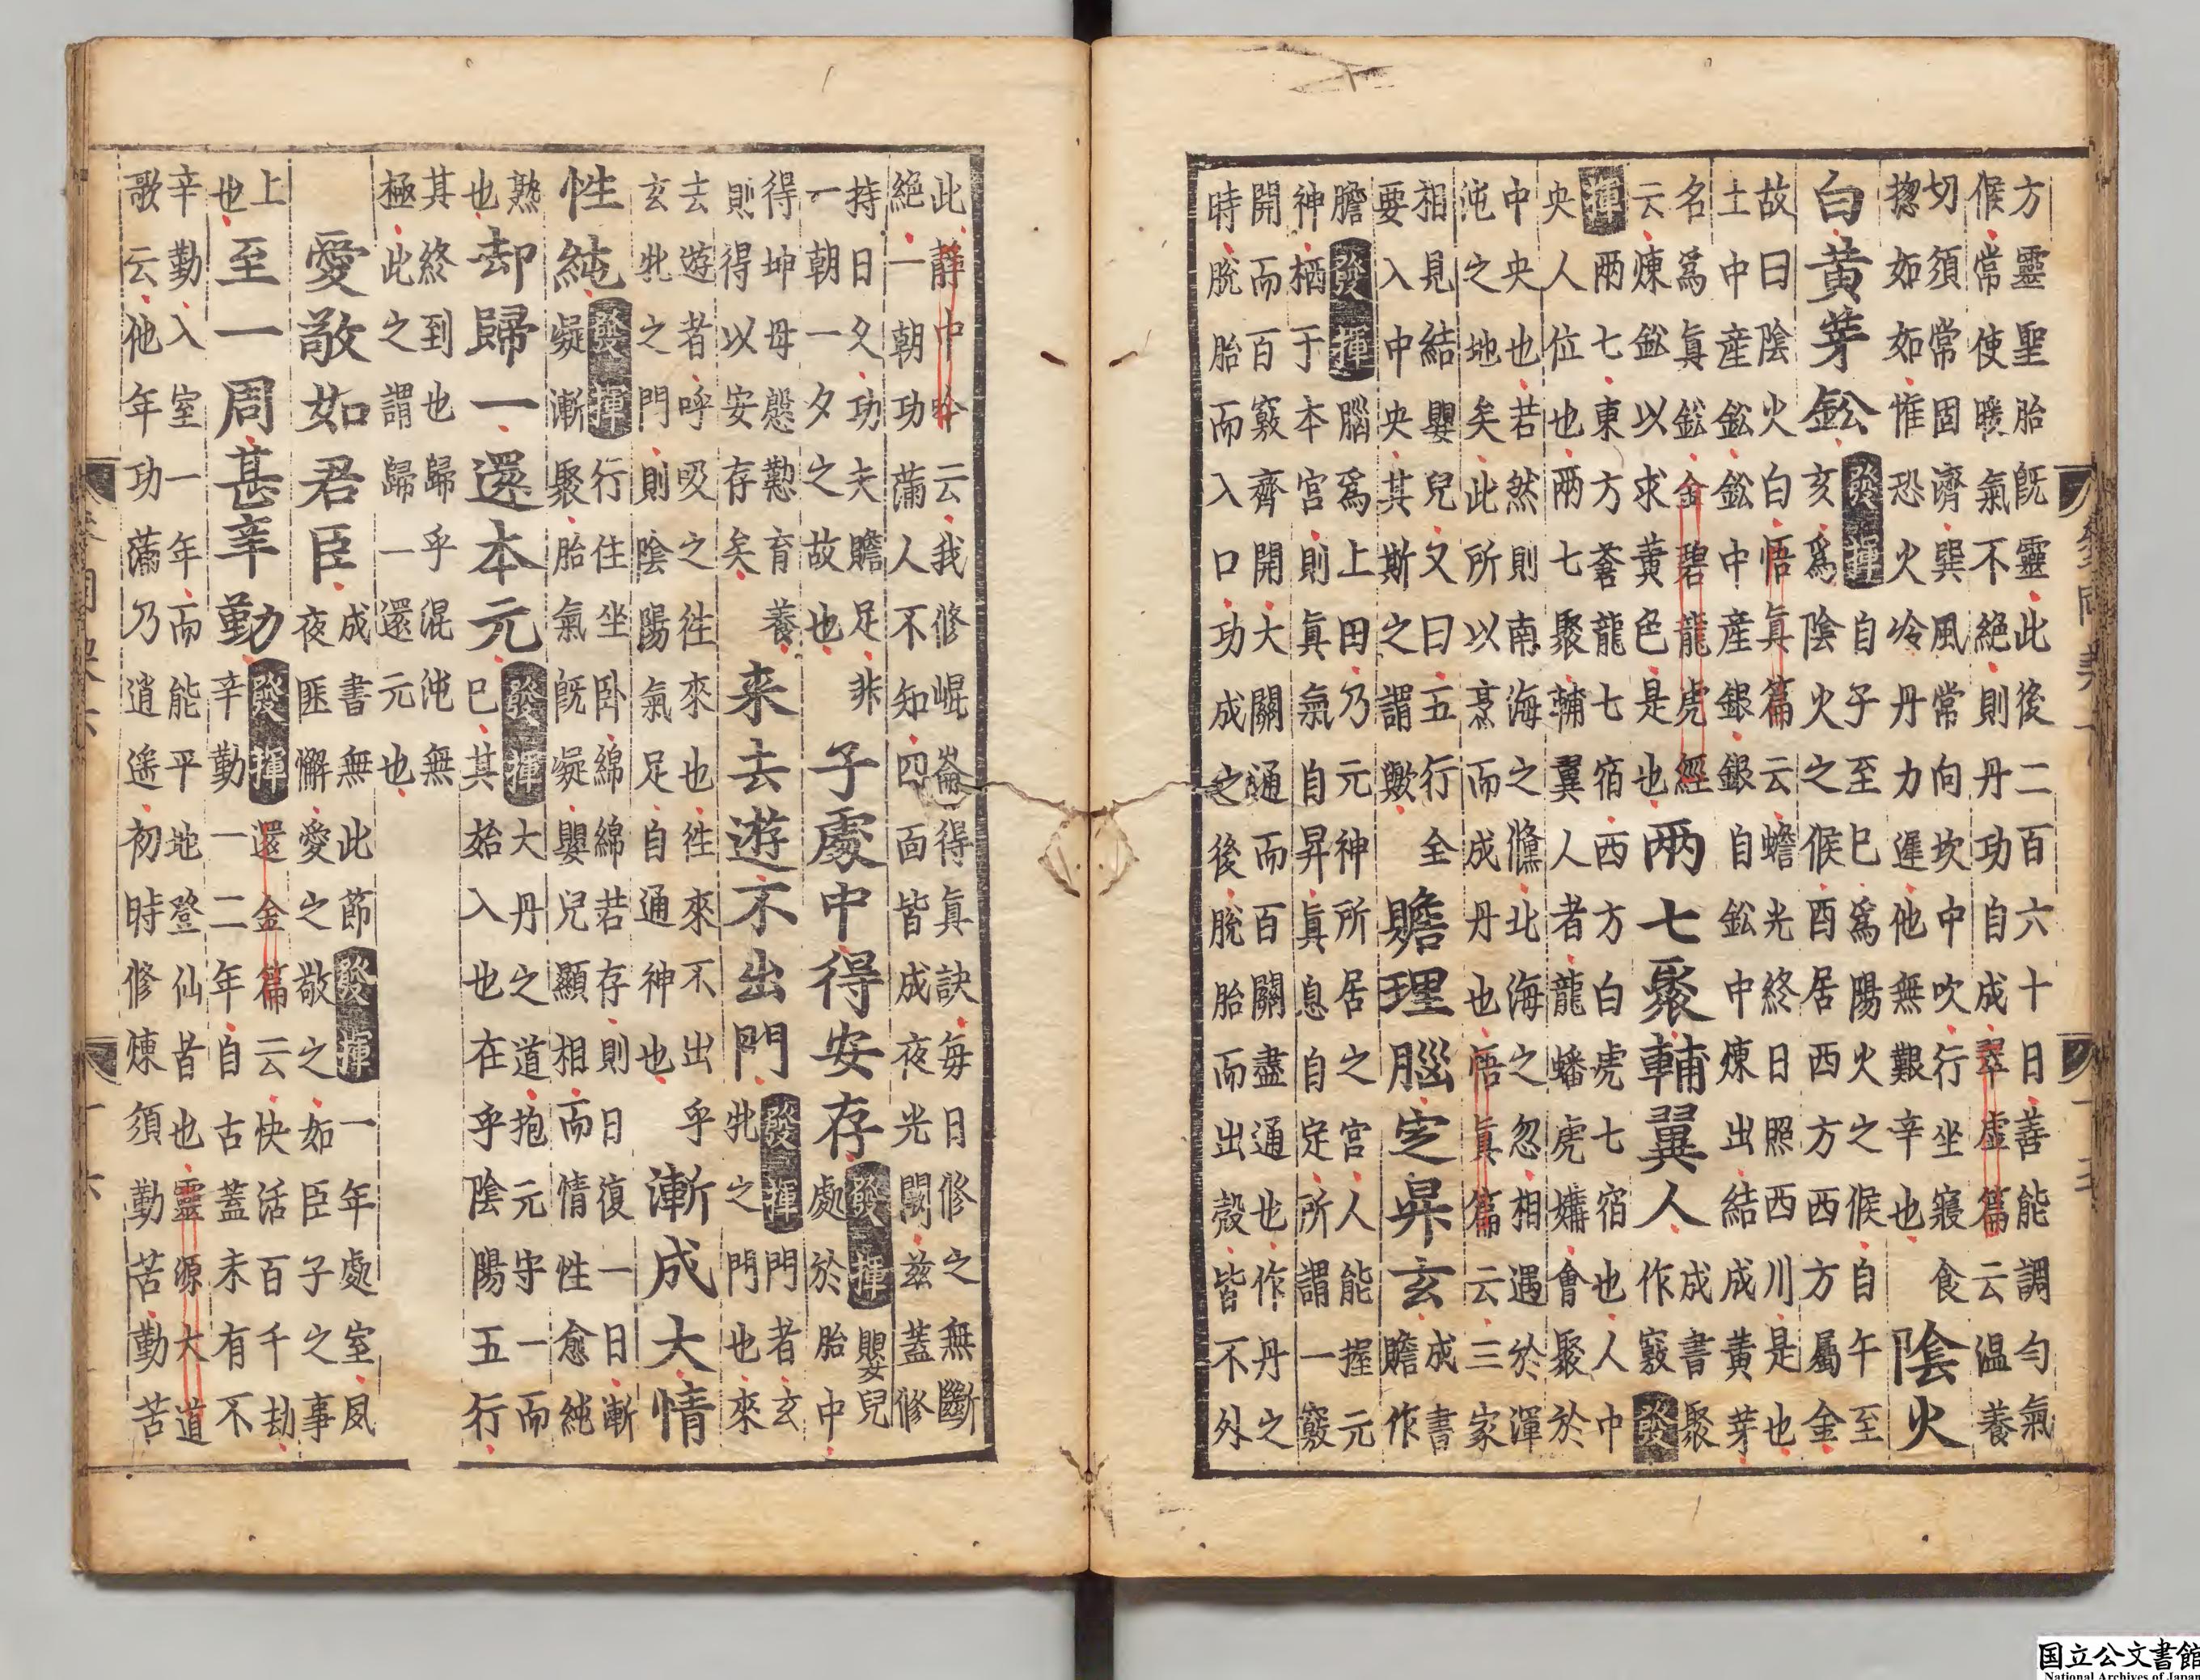 方靈聖胎既靈此後二百六十日善能調勻氣
候常使暖氣不絕則丹功自成翠虛篇云温養
切須常固濟巽風常向坎中吹行坐寢食
惚如如惟恐火冷丹力遲他無艱辛也
陰火
白黃芽鉛
發揮
自子至巳爲陽火之候自午至
亥爲陰火之候酉居西方西方屬金
故曰陰火白悟眞篇云蟾光終日照西川是也
土中產鉛鉛中產銀銀自鉛中煉出結成黃芽
名爲眞鉛金碧龍虎經
云煉鉛以求黃色是也
兩七聚輔翼人
成書聚
作竅
發
揮
兩七東方蒼龍七宿西方白虎七宿也人中
央人位也兩七聚輔翼人者龍蟠虎媾會聚於
中央也若然則南海之儵北海之忽相遇於渾
沌之地矣此所以烹而成丹也悟眞篇云三家
相見結嬰兒又曰五行全
要入中央其斯之謂歟
贍理腦定昇玄
成書
贍作
膽
發揮
腦爲上田乃元神所居之宮人能握元
神栖于本宮則眞氣自昇眞息自定所謂一竅
開而百竅齊開大關通而百關盡通也作丹之
時脫胎而入口功成之後脫胎而出殼皆不外
此靜中吟云我修崐崙得眞訣每日修之無斷
絕一朝功蒲人不知四面皆成夜光闕茲蓋修
持日久功夫贍足非
一朝一夕之故也
子處中得安存
發揮
嬰兒
處於胎中
得坤母慇懃育養
則得以安存矣
来去遊不出門
發揮
門者玄
牝之門門也來
去遊者呼吸之往來也往來不出乎
玄牝之門則陰陽氣足自通神也
漸成大情
性純
發揮
行住坐卧綿綿若存則日復一日漸
凝漸聚胎氣既凝嬰兒顯相而情性愈純
熟
也
却歸一還本元
發揮
大丹之道抱元守一而
巳其始入也在乎陰陽五行
其終到也歸乎混沌無
極此之謂歸一還元也
愛敬如君臣
成書無此節
發揮
一年處室夙
夜匪懈愛之敬之如臣子之事
上
也
至一周甚辛勤
發揮
還金篇云快活百千劫
辛勤一二年自古蓋未有不
辛勤入室一年而能平地登仙者也靈源大道
歌云他年功蒲乃逍遥初時修煉須勤苦勤苦
国立公文書館
National Archives of Japan